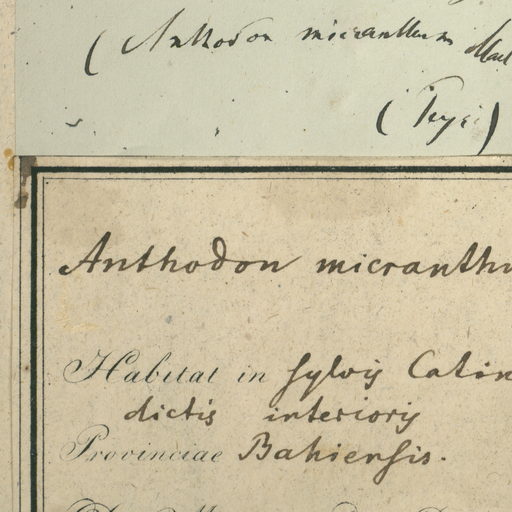 (Anthodon micranthum Mart
(Peyr)
Anthodon micranthu
Habitat in sylvis Catin
dictis interioris
Provinciae Bahiensis.